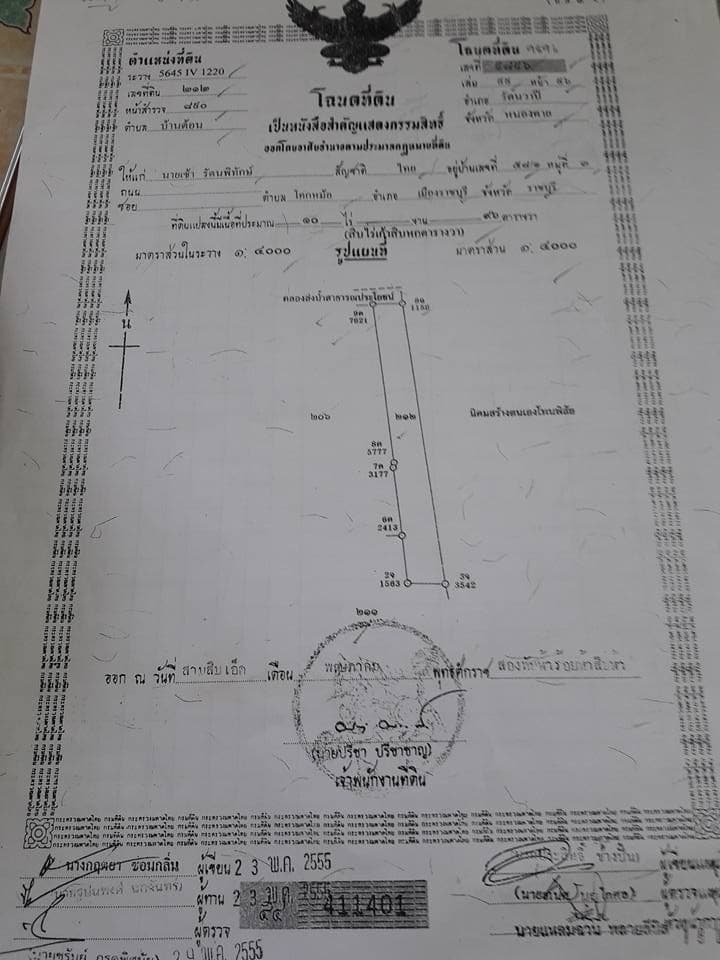 ตำแหน่งที่ดิน
ระวาง 5645 IV 1220
เลขที่ดิน ๒๑๒
หน้าสำรวจ ๘๕๐
ตำบล บ้านต้อน
โฉนดที่ดิน
เลขที่
เล่ม ๕๕ หน้า ๕๖
อำเภอ รัตนวาปี
จังหวัด หนองคาย
โฉนดที่ดิน
เป็นหนังสือสำคัญแสดงกรรมสิทธิ์
ออกโดยอาศัยอำนาจตามประมวลกฎหมายที่ดิน
ให้แก่ นายเช้า รัตนพิทักษ์ สัญชาติ ไทย อยู่บ้านเลขที่ ๕๘/๑ หมู่ที่ ๓
ถนน
ซอย ตำบล โคกหม้อ อำเภอ เมืองราชบุรี จังหวัด ราชบุรี
ที่ดินแปลงนี้มีเนื้อที่ประมาณ ๑๐ ไร่ งาน ๙๖ ตารางวา
(สิบไร่เก้าสิบหกตารางวา)
มาตราส่วนในระวาง ๑: ๔๐๐๐ รูปแผนที่ มาตราส่วน ๑: ๔๐๐๐
น
คลองส่งน้ำสาธารณประโยชน์
7621
1159
๒๐๖ ๒๑๒ นิคมสร้างตนเองโพนพิสัย
8ค
5777
7ค
3177
6ค
2413
2จ
1563
3จ
3542
๒๑๑
ออก ณ วันที่ สามสิบเอ็ด เดือน พฤษภาคม พุทธศักราช สองพันห้าร้อยห้าสิบห้า
(นายปรีชา ปรีชาชาญ)
เจ้าพนักงานที่ดิน
นางกฤตยา ซ่อมกลิ่น ผู้เขียน 2 3 พ.ค. 2555
ผู้ทาน 2 3 พ.ค. 2555
๕๕ 411401
ผู้ตรวจ
2 9 พ.ค. 2555